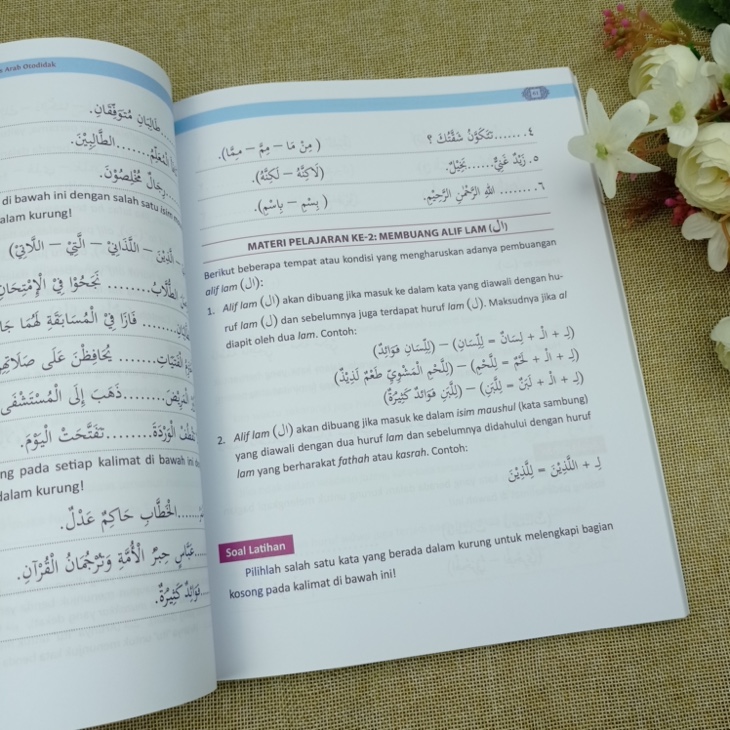 Arab Otodidak
طَالِبَانِ مُتَوَفِّقَانِ.
الْمُعَلِّمُ........الطَّالِبَيْنِ.
رِجَالٌ مُخْلِصُوْنَ.
di bawah ini dengan salah satu isim
alam kurung!
الَّذِيْنَ – اللَّذَانِ – الَّتِيْ – اللَّاتِيْ)
الطُّلَّابُ........ نَجَحُوْا فِي الْإِمْتِحَانِ
........ فَازَا فِي الْمُسَابَقَةِ لَهُمَا
الْفَتَيَاتُ........يُحَافِظْنَ عَلَى صَلَاتِهِنَّ
الْمَرِيْضُ........ذَهَبَ إِلَى الْمُسْتَشْفَى
الْوَرْدَةَ........تَفَتَّحَتْ الْيَوْمَ.
ng pada setiap kalimat di bawah ini
dalam kurung!
........الْخَطَّابِ حَاكِمٌ عَدْلٌ.
........عَبَّاسٍ حِبْرُ الْأُمَّةِ وَتَرْجُمَانُ الْقُرْآنِ.
........فَوَائِدُ كَثِيْرَةٌ.
٤. ........تَتَكَوَّنُ شَقَّتُكَ ؟ (مِنْ مَا – مِمَّ – مِمَّا).
٥. زَيْدٌ غَنِيٌّ........بَخِيْلٌ. (لَاكِنَّهُ – لَكِنَّهُ).
٦. ........ اللهِ الرَّحْمٰنِ الرَّحِيْمِ. (بِسْمِ – بِاسْمِ).
MATERI PELAJARAN KE-2: MEMBUANG ALIF LAM (ال)
Berikut beberapa tempat atau kondisi yang mengharuskan adanya pembuangan
alif lam (ال):
1. Alif lam (ال) akan dibuang jika masuk ke dalam kata yang diawali dengan hu-
ruf lam (ل) dan sebelumnya juga terdapat huruf lam (ل). Maksudnya jika al
diapit oleh dua lam. Contoh:
(لِـ + الْـ + لِسَانٌ = لِلِّسَانِ) – (لِلِّسَانِ فَوَائِدٌ)
(لِـ + الْـ + لَحْمٌ = لِلَّحْمِ) – (لِلَّحْمِ الْمَشْوِيِّ طَعْمٌ لَذِيْذٌ)
(لِـ + الْـ + لَبَنٌ = لِلَّبَنِ) – (لِلَّبَنِ فَوَائِدُ كَثِيْرَةٌ)
2. Alif lam (ال) akan dibuang jika masuk ke dalam isim maushul (kata sambung)
yang diawali dengan dua huruf lam dan sebelumnya didahului dengan huruf
lam yang berharakat fathah atau kasrah. Contoh:
لِـ + اللَّذِيْنَ = لِلَّذِيْنَ
Soal Latihan
Pilihlah salah satu kata yang berada dalam kurung untuk melengkapi bagian
kosong pada kalimat di bawah ini!